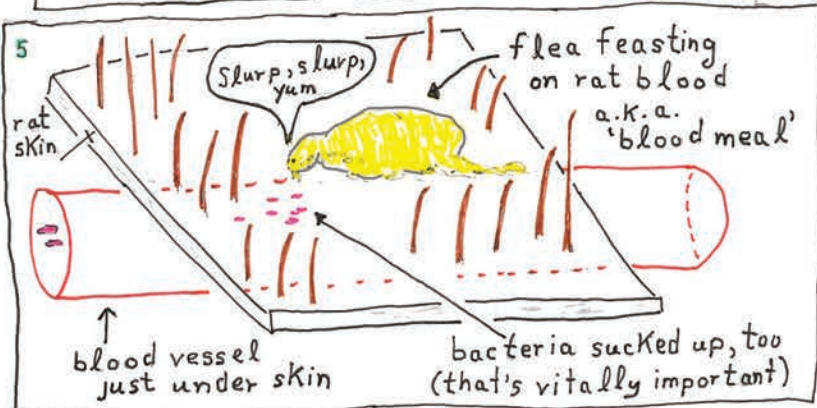 5
Slurp, slurp,
yum
flea feasting
on rat blood
a.k.a.
'blood meal'
rat
skin
blood vessel
just under skin
bacteria sucked up, too
(that's vitally important)